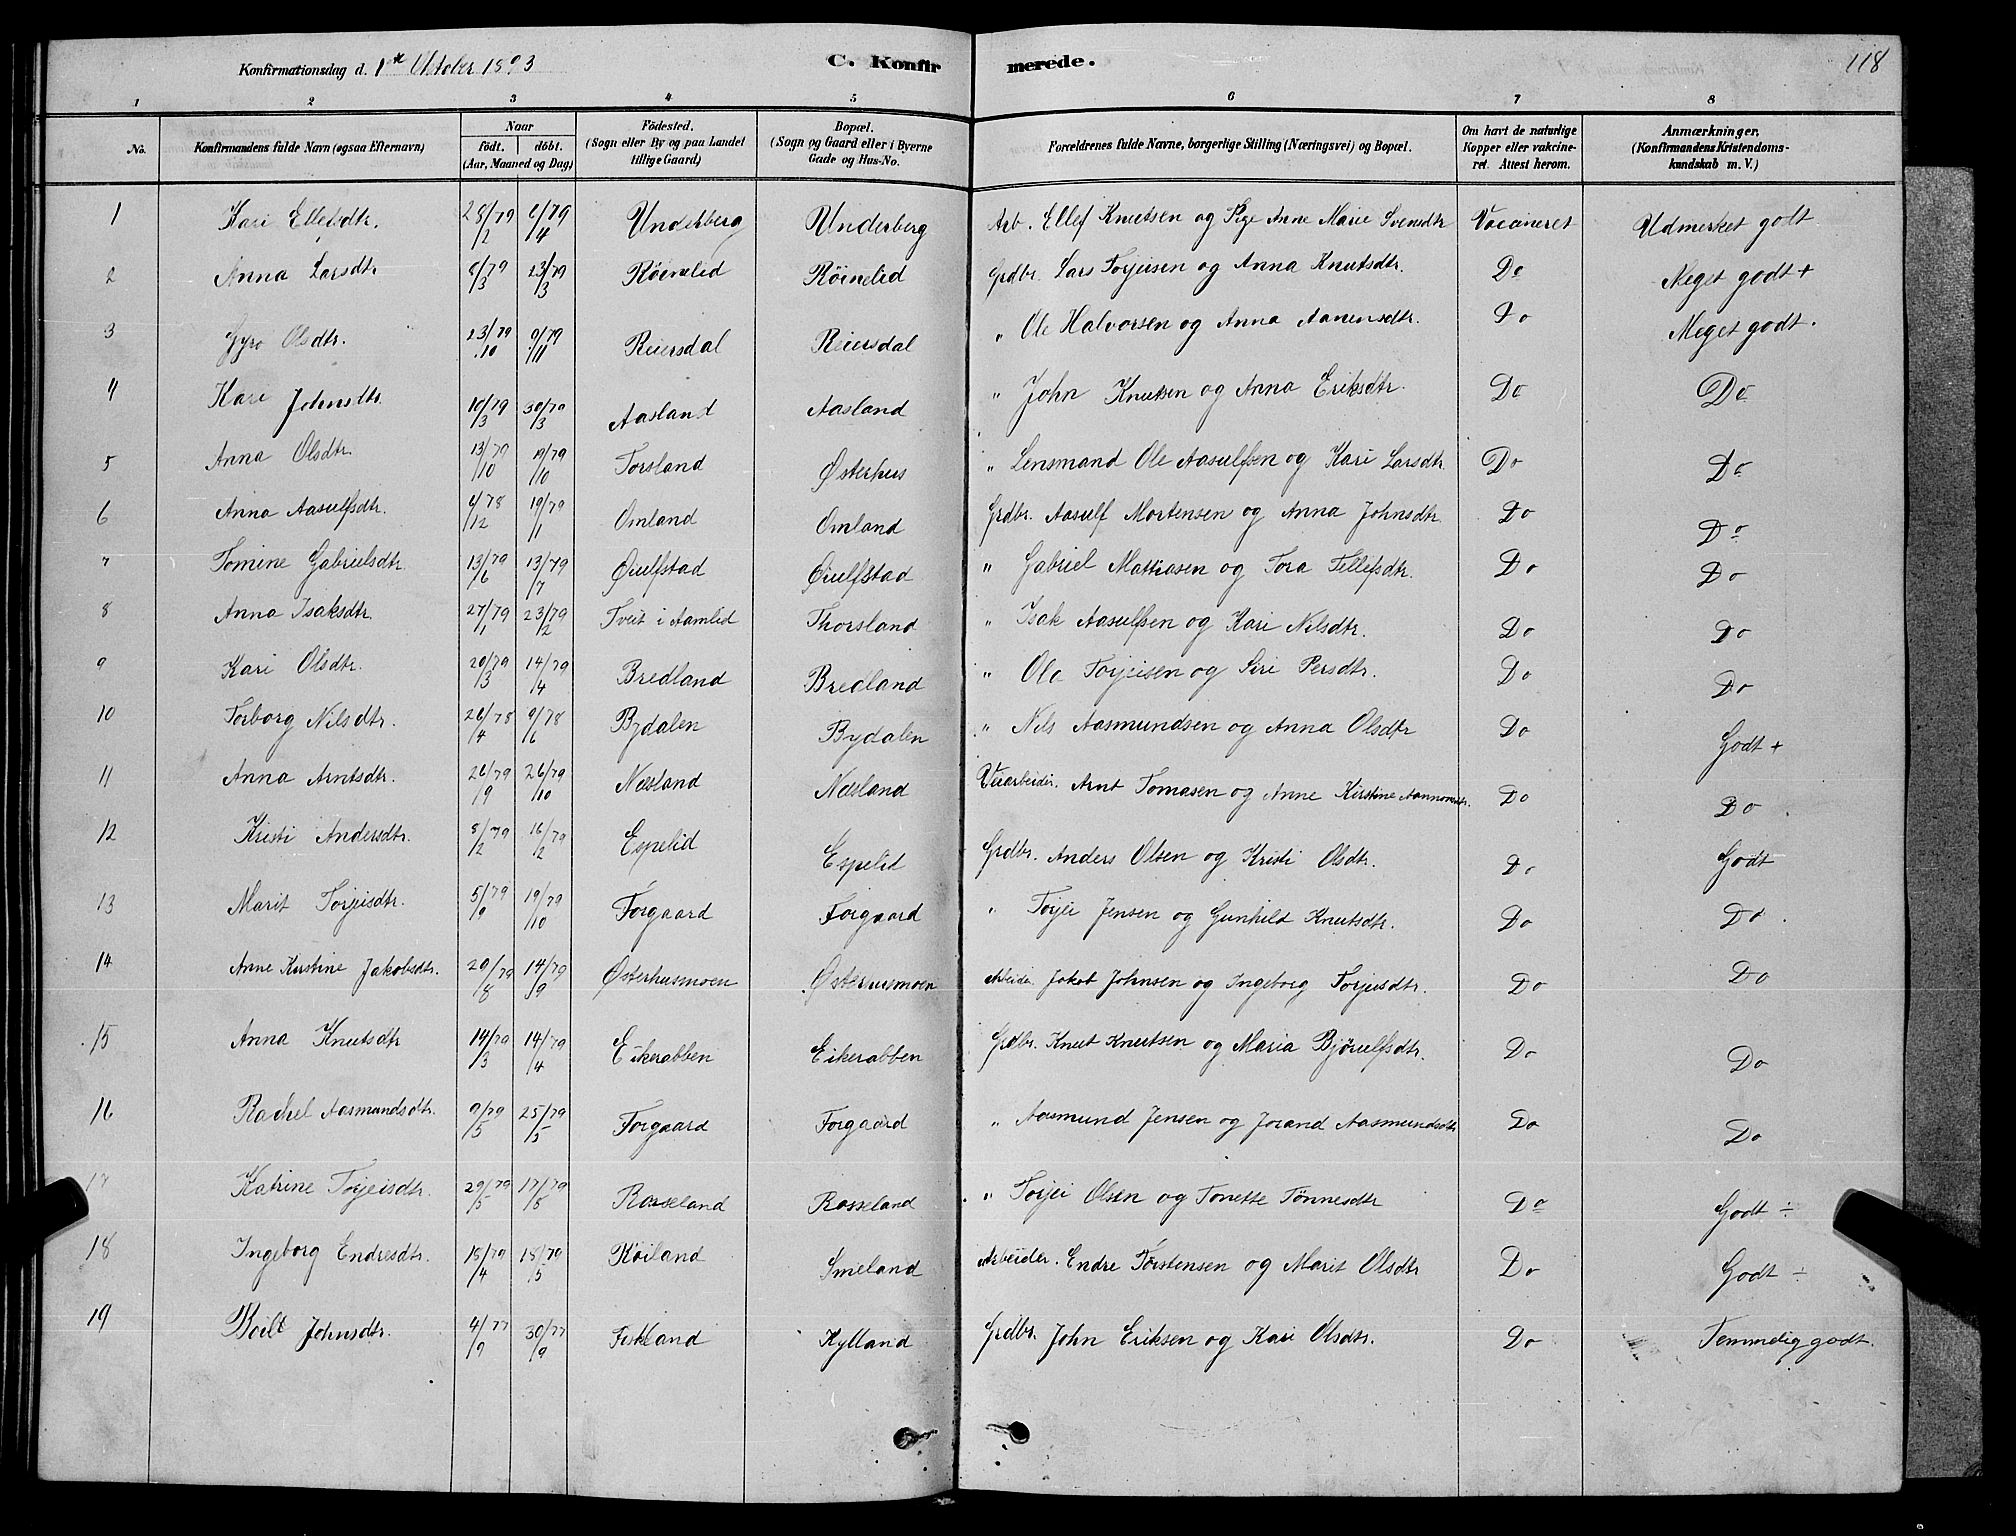 Konfirmationsdag d. 1ste Oktober 1893 C. Konfirmerede. 118
1 2 3 4 5 6 7 8
No. Konfirmandens fulde Navn (ogsaa Efternavn) Naar födt. döbt. (Aar, Maaned og Dag) Födested. (Sogn eller By og paa Landet tillige Gaard) Bopæl. (Sogn og Gaard eller i Byerne Gade og Hus-No. Forældrenes fulde Navne, borgerlige Stilling (Næringsvei) og Bopæl. Om havt de naturlige Kopper eller vakcineret. Attest herom. Anmærkninger. (Konfirmandens Kristendomskundskab m. V.)
1 Kari Ellefsdtr. 28/2 79 6/4 79 Underberg Underberg Arb. Ellef Knutsen og Pige Anne Marie Svensdtr Vaccineret Udmerket godt
2 Anna Larsdtr 8/3 79 23/3 79 Röinelid Röinelid Grdbr. Lars Torjeisen og Anna Knutsdtr. Do Meget godt +
3 Gyro Olsdtr. 23/10 79 9/11 79 Reiersdal Reiersdal " Ole Halvorsen og Anna Aanensdtr. Do Meget godt.
4 Kari Johnsdtr. 10/3 79 30/3 79 Aasland Aasland " John Knutsen og Anna Eriksdtr. Do Do
5 Anna Olsdtr. 13/10 79 19/10 79 Torsland Østerhus " Lensmand Ole Aasulfsen og Kari Larsdtr Do Do
6 Anna Aasulfsdtr. 4/12 78 19/1 79 Omland Omland Grdbr. Aasulf Mortensen og Anna Johnsdtr. Do Do
7 Tomine Gabrielsdtr 13/6 79 13/7 79 Øiulfstad Øiulfstad " Gabriel Matiasen og Tora Tellefsdtr. Do Do
8 Anna Isaksdtr. 27/1 79 23/2 79 Tveit i Aamlid Thorsland " Isak Aasulfsen og Kari Nilsdtr. Do Do
9 Kari Olsdtr. 20/3 79 14/4 79 Bredland Bredland " Ole Torjeisen og Siri Persdtr. Do Do
10 Torborg Nilsdtr. 26/4 78 9/6 78 Bydalen Bydalen " Nils Aasmundsen og Anna Olsdtr Do Godt +
11 Anna Arntsdtr. 26/9 79 26/10 79 Næsland Næsland Veiarbeider. Arnt Tomasen og Anne Kirstine Do Do.
12 Kristi Andersdtr. 8/2 79 16/2 79 Espelid Espelid Grdbr. Anders Olsen og Kristi Olsdtr. Do Godt
13 Marit Torjeisdtr. 5/9 79 19/10 79 Forgaard Forgaard " Torjei Jensen og Gunhild Knutsdtr. Do Do.
14 Anne Kirstine Jakobsdtr. 20/8 79 14/9 79 Østerhusmoen Østerhusmoen Arbeider Jakob Johnsen og Ingeborg Torjeisdtr. Do Do
15 Anna Knutsdtr 14/3 79 14/4 79 Eikerabben Eikerabben Grdbr. Knut Knutsen og Maria Bjöulfsdtr. Do Do
16 Rachel Aasmundsdtr. 9/5 79 25/5 79 Forgaard Forgaard " Aasmund Jensen og Jorand Aasmundsdtr Do Do
17 Katrine Torjeisdtr. 29/5 79 17/8 79 Rosseland Rosseland " Torjei Olsen og Tonette Tönnesdtr Do Godt ÷
18 Ingeborg Endresdtr. 15/4 79 18/5 79 Röiland Smeland Arbeider. Endre Torstensen og Marit Olsdtr Do Godt ÷
19 Boilt Johnsdtr. 4/9 77 30/9 77 Fiskland Kylland Grdbr. John Eriksen og Kari Olsdtr. Do Temmelig godt.